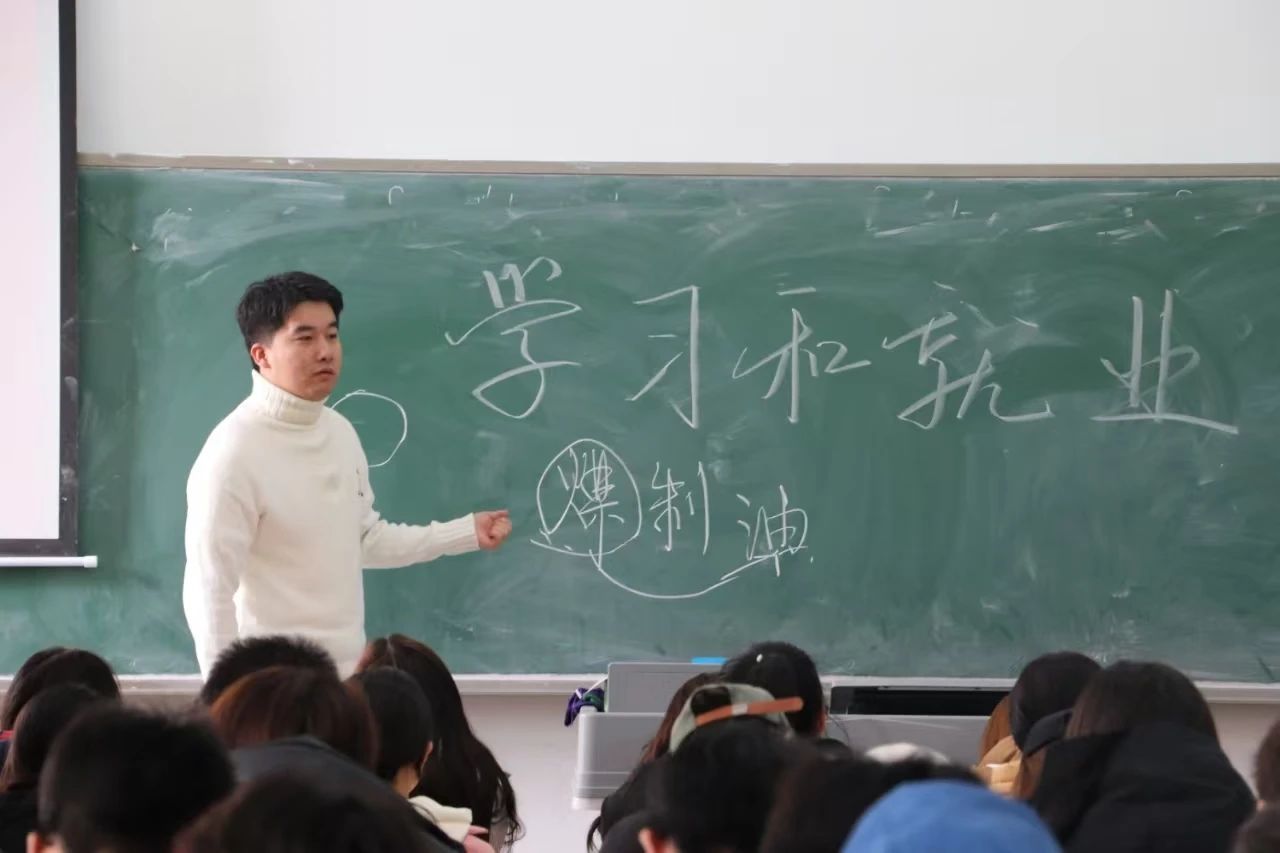 学习和就业
煤制油